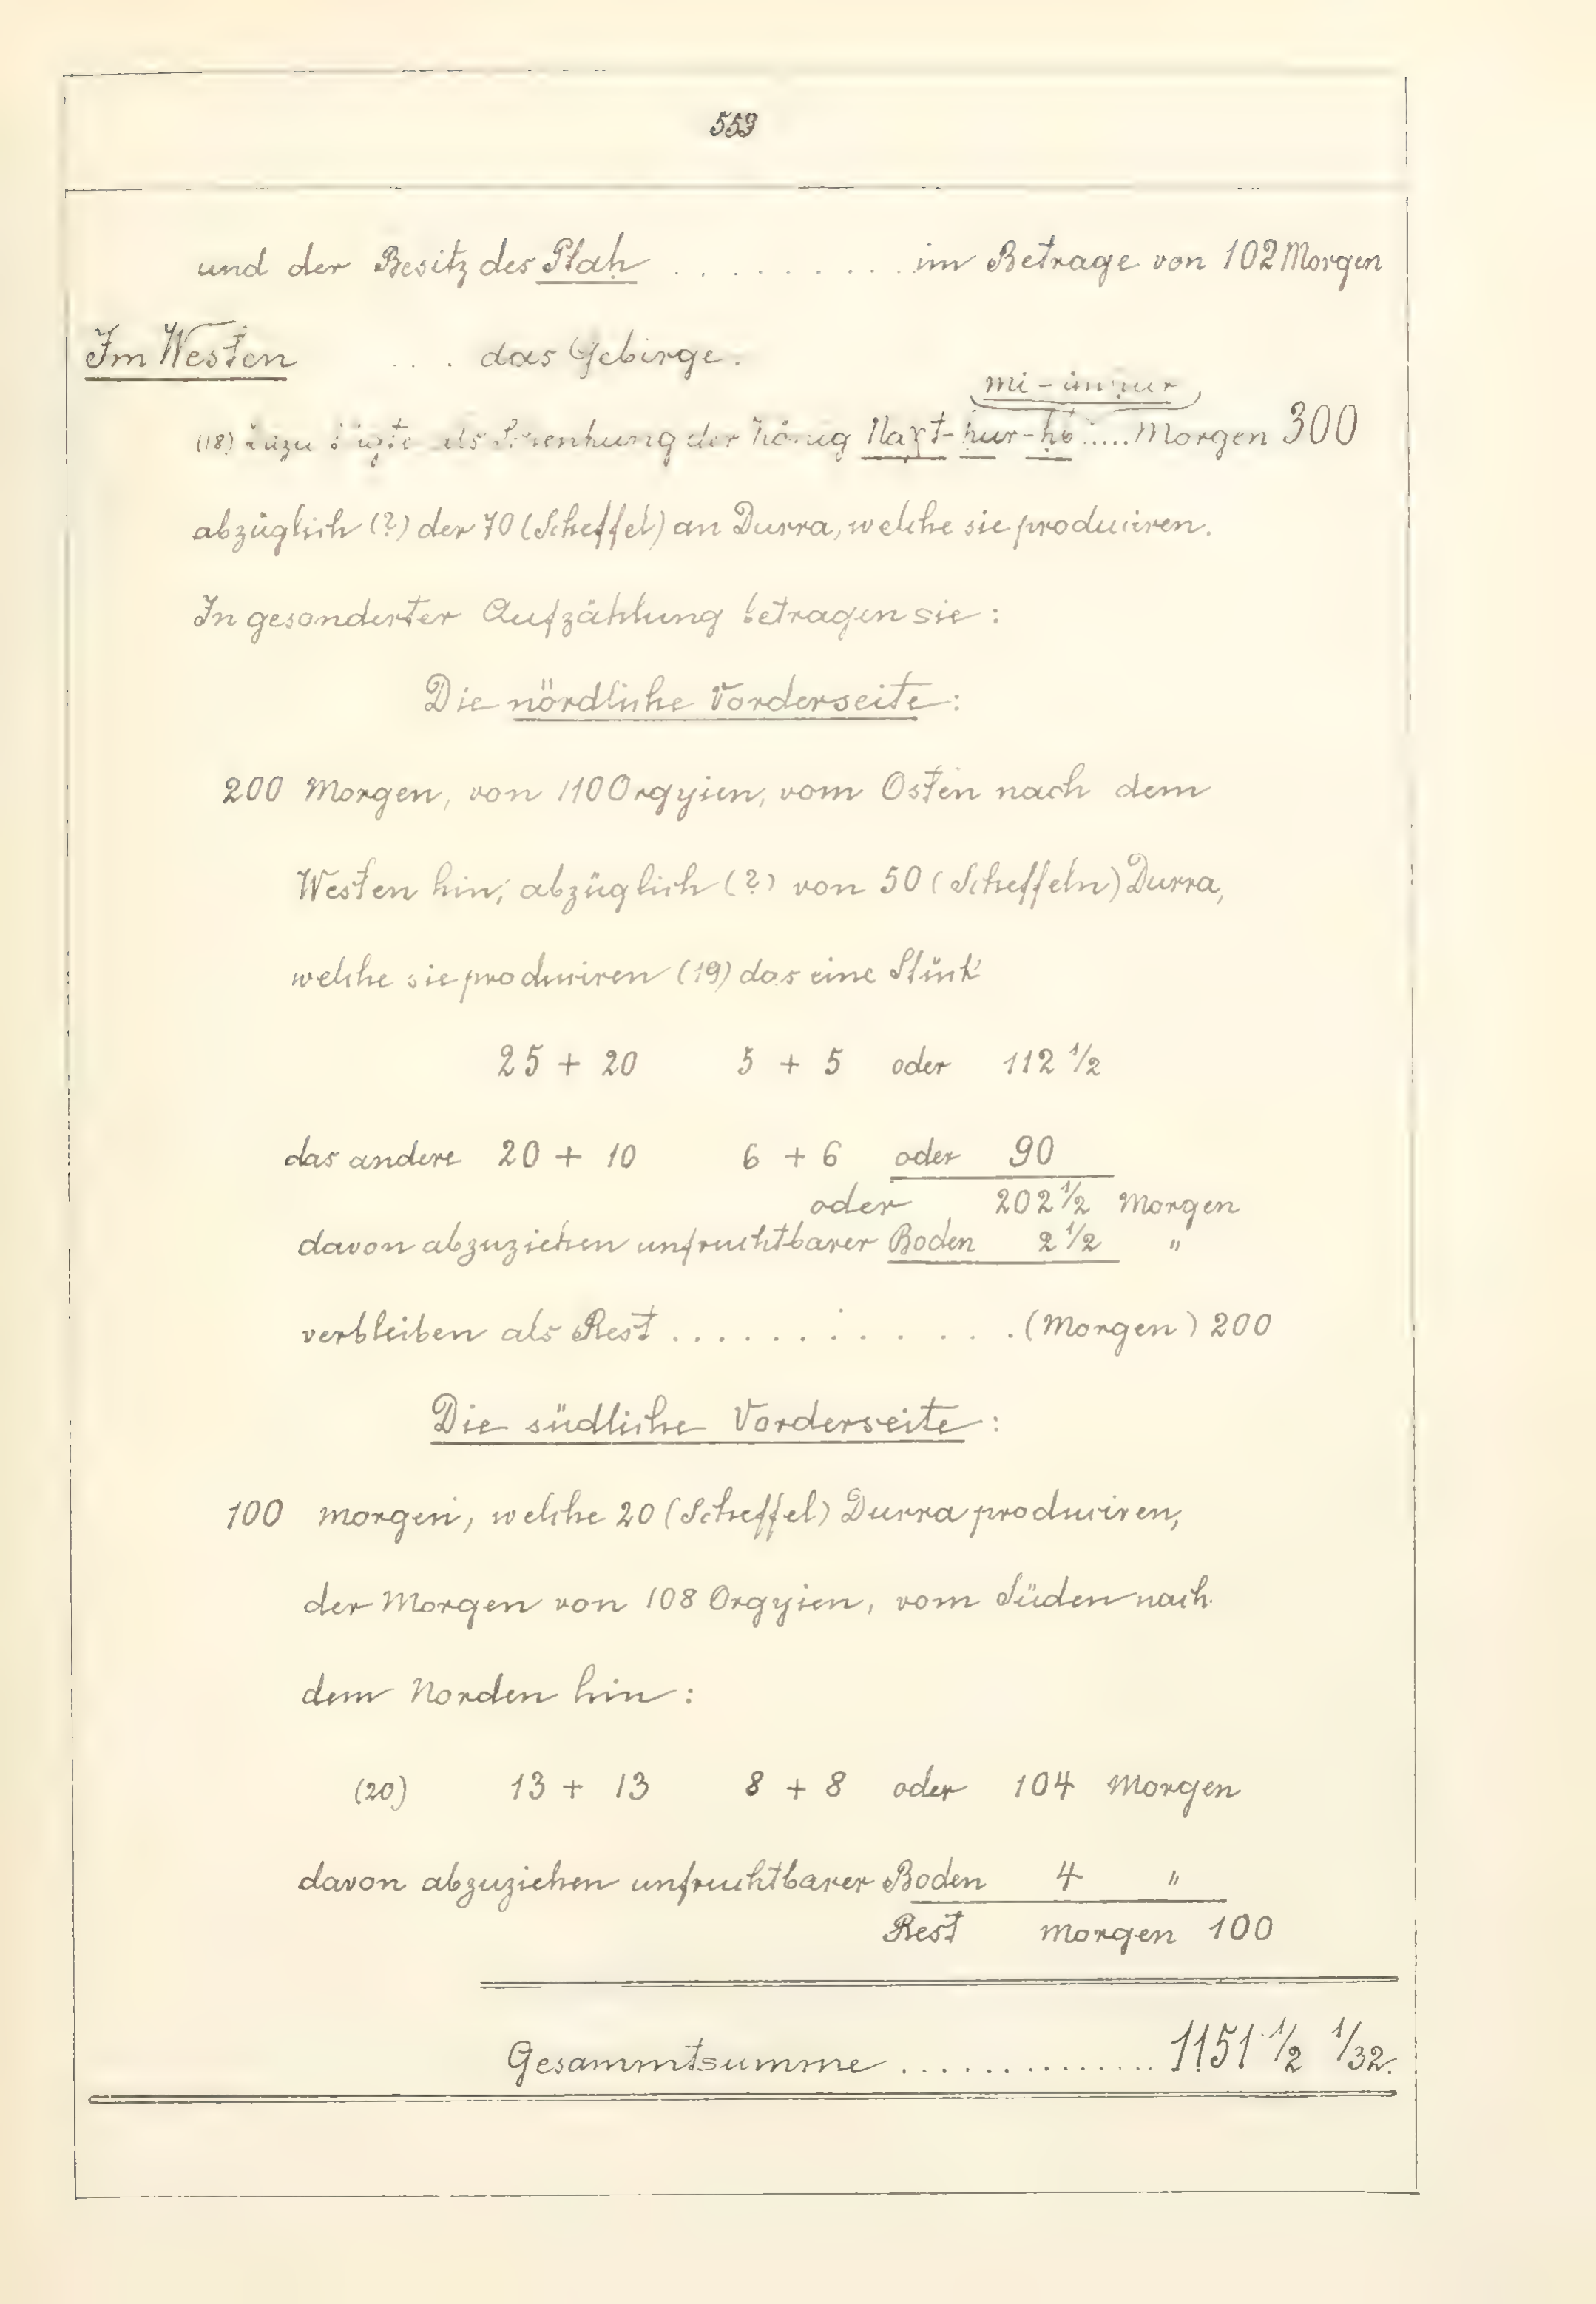 559
und der Besitz des Ptaḥ .......... im Betrage von 102 Morgen
Im Westen ... das Gebirge.
(18) der König Naχt-ḥur-ḥb ..... Morgen 300
abzüglich (?) der 70 (Scheffel) an Durra, welche sie produciren.
In gesonderter Aufzählung betragen sie :
Die nördliche Vorderseite :
200 Morgen, von 110 Orgyien, vom Osten nach dem
Westen hin, abzüglich (?) von 50 (Scheffeln) Durra,
welche sie produciren (19) das eine Stück
25 + 20 5 + 5 oder 112 1/2
das andere 20 + 10 6 + 6 oder 90
oder 202 1/2 Morgen
davon abzuziehen unfruchtbarer Boden 2 1/2 "
verbleiben als Rest ............. (Morgen) 200
Die südliche Vorderseite :
100 Morgen, welche 20 (Scheffel) Durra produciren,
der Morgen von 108 Orgyien, vom Süden nach
dem Norden hin :
(20) 13 + 13 8 + 8 oder 104 Morgen
davon abzuziehen unfruchtbarer Boden 4 "
Rest Morgen 100
Gesammtsumme .............. 1151 1/2 1/32.